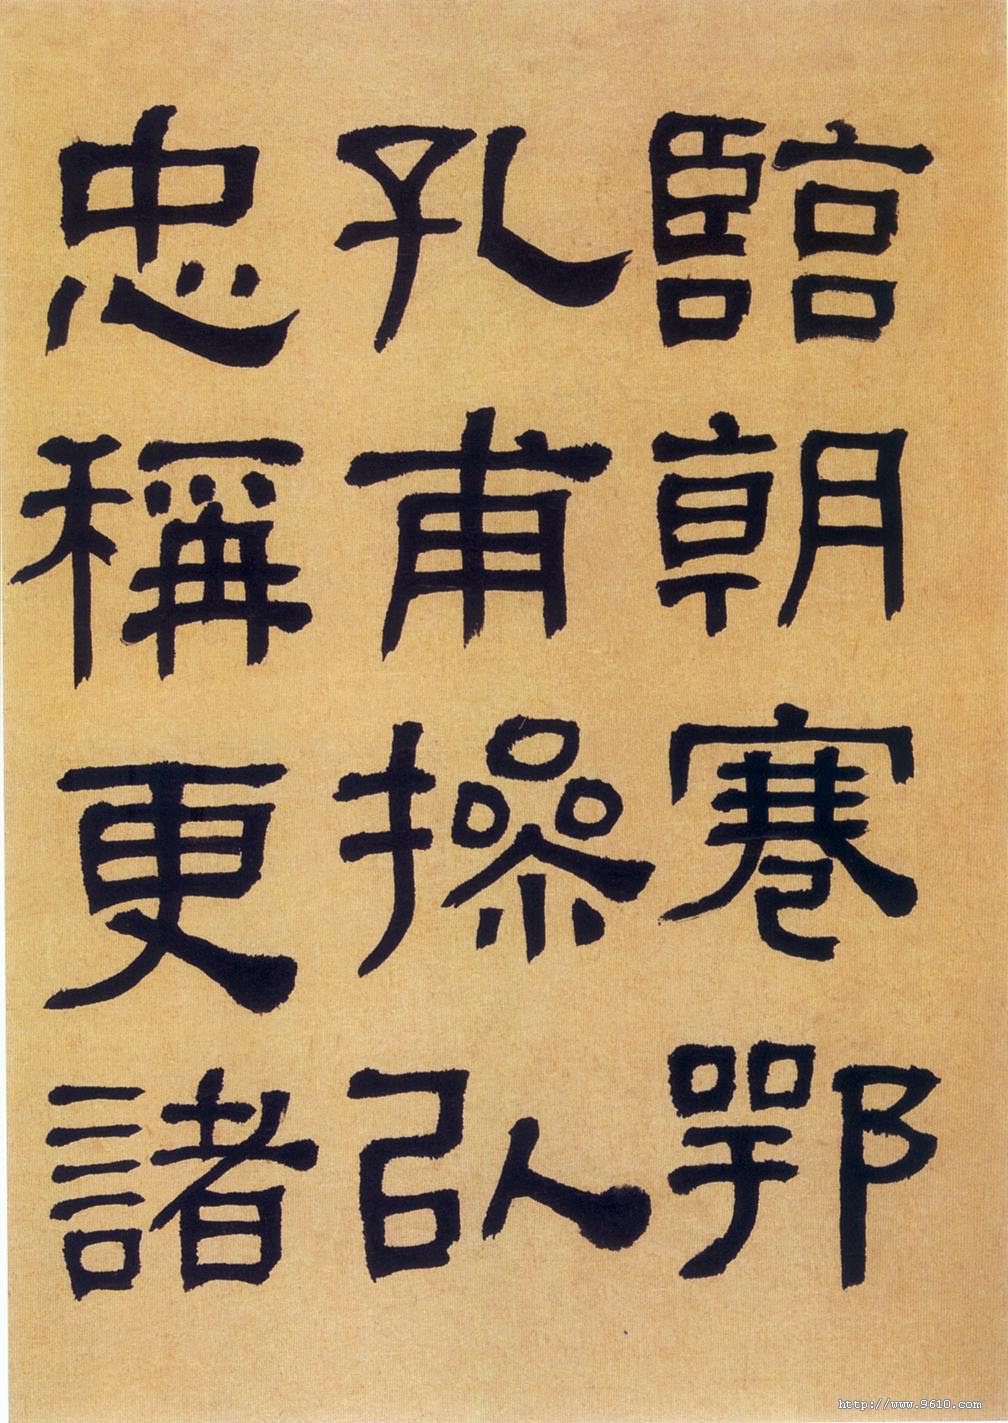 臨朝寋鄂
孔甫操以
忠稱更諸
http://www.9610.com